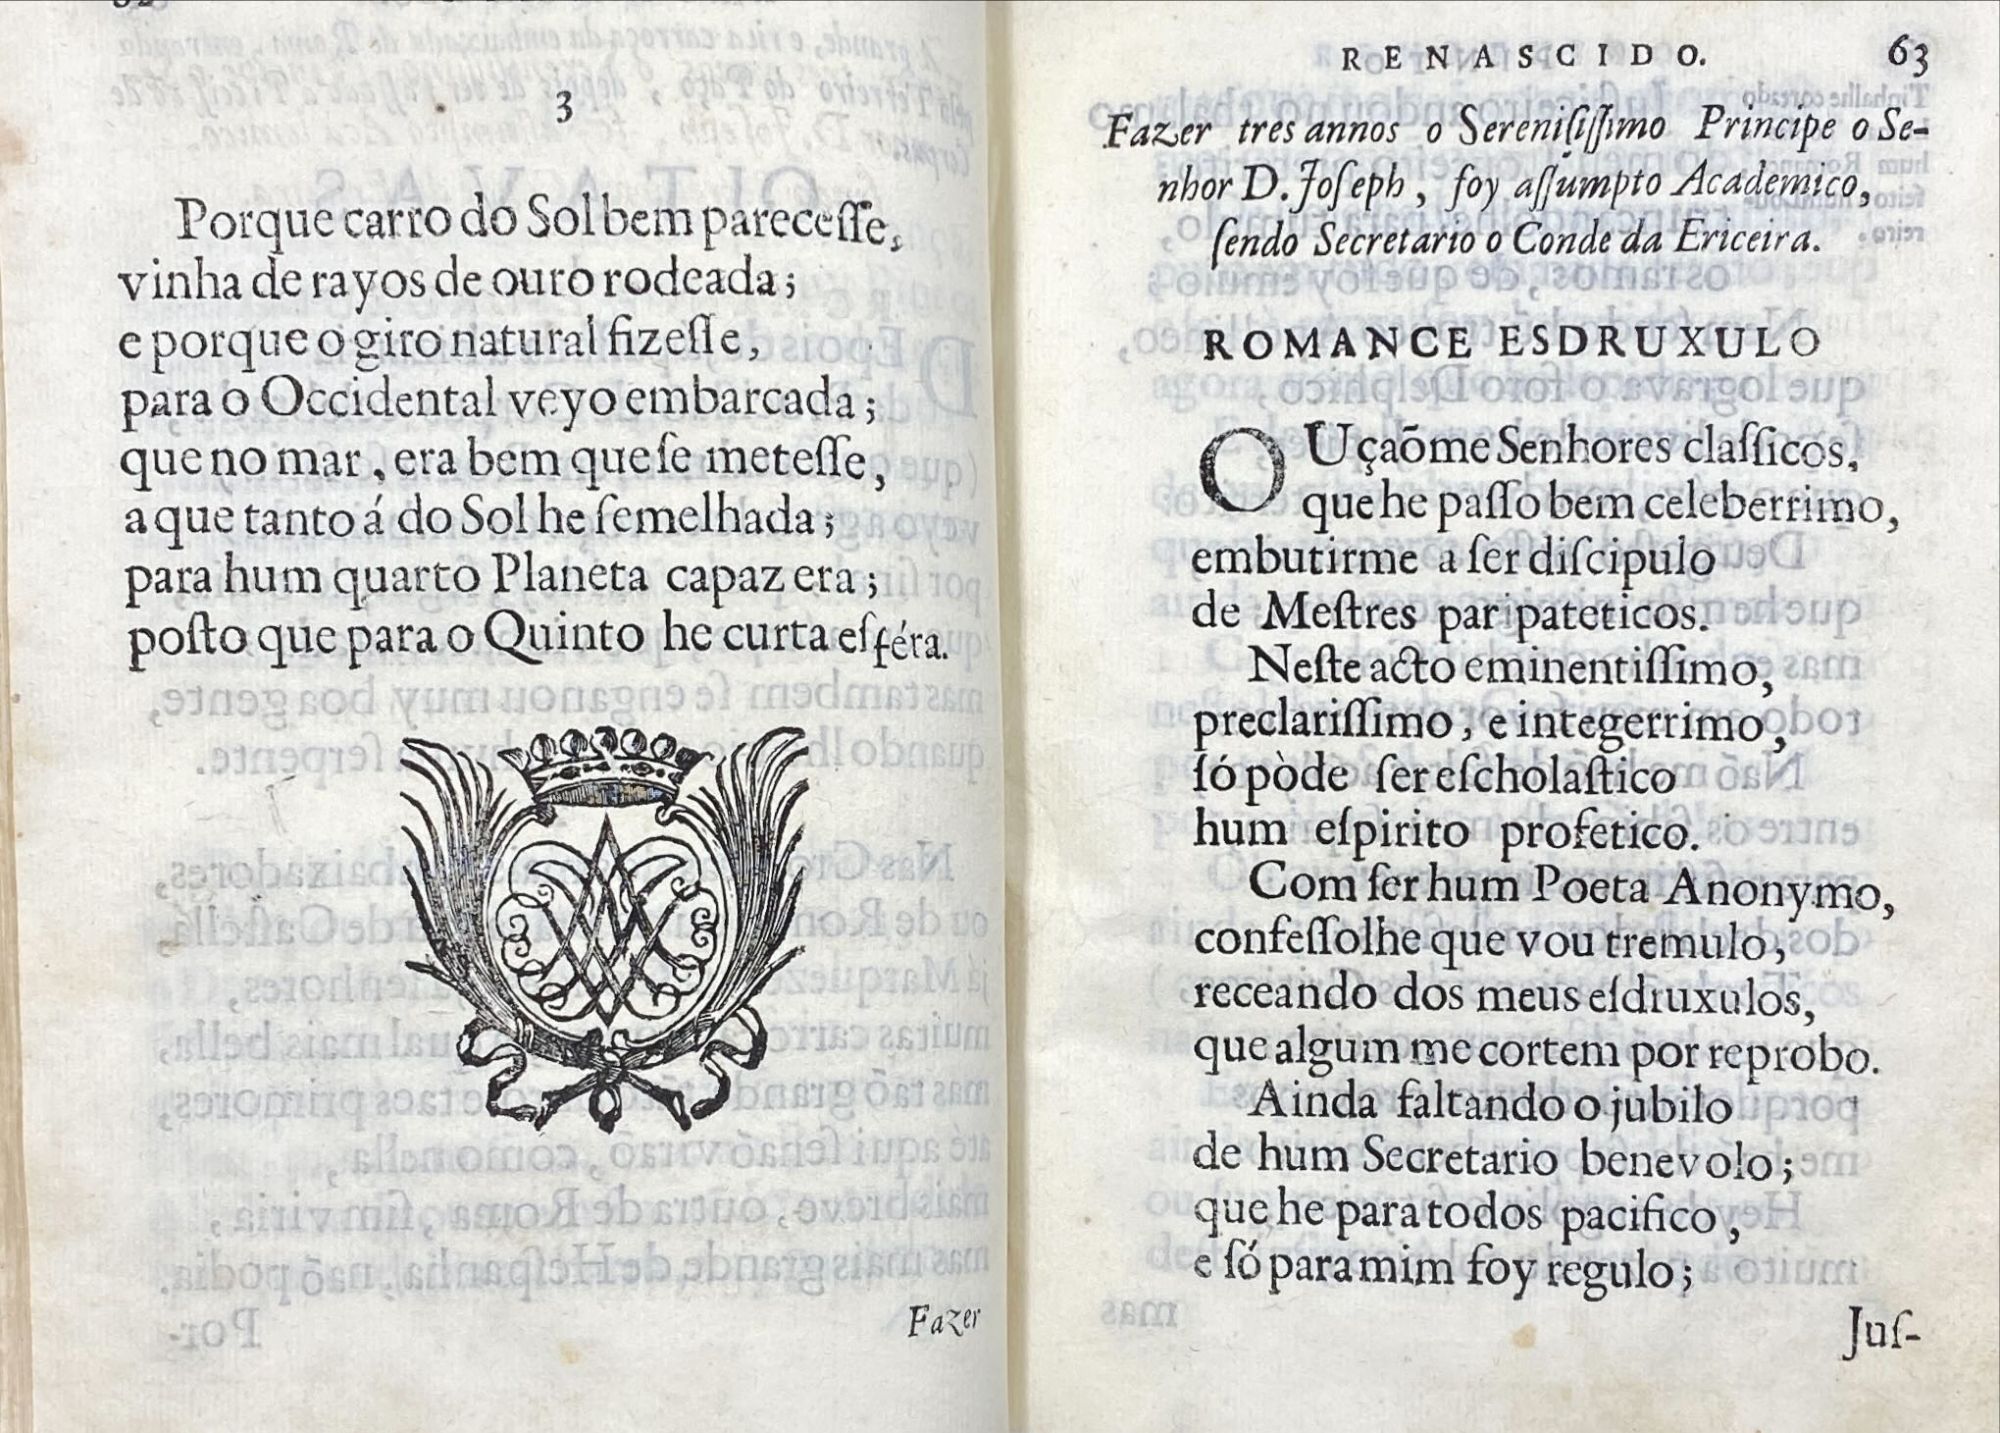 3
Porque carro do Sol bem pareceſſe,
vinha de rayos de ouro rodeada;
e porque o giro natural fizeſſe,
para o Occidental veyo embarcada;
que no mar, era bem que ſe meteſſe,
a que tanto á do Sol he ſemelhada;
para hum quarto Planeta capaz era;
poſto que para o Quinto he curta esféra.
Fazer
RENASCIDO. 63
Fazer tres annos o Sereniſſiſſimo Principe o Se-
nhor D. Joſeph, foy aſſumpto Academico,
ſendo Secretario o Conde da Ericeira.
ROMANCE ESDRUXULO
OUçaõme Senhores claſſicos,
que he paſſo bem celeberrimo,
embutirme a ſer diſcipulo
de Meſtres paripateticos.
Neſte acto eminentiſſimo,
preclariſſimo, e integerrimo,
ſó pòde ſer eſcholaſtico
hum eſpirito profetico.
Com ſer hum Poeta Anonymo,
confeſſolhe que vou tremulo,
receando dos meus eſdruxulos,
que algum me cortem por reprobo.
Ainda faltando o jubilo
de hum Secretario benevolo;
que he para todos pacifico,
e ſó para mim foy regulo;
Juſ-